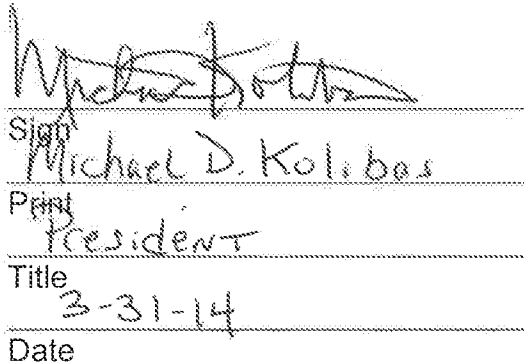 Sign
Michael D. Kolibas
Print
President
Title
3-31-14
Date